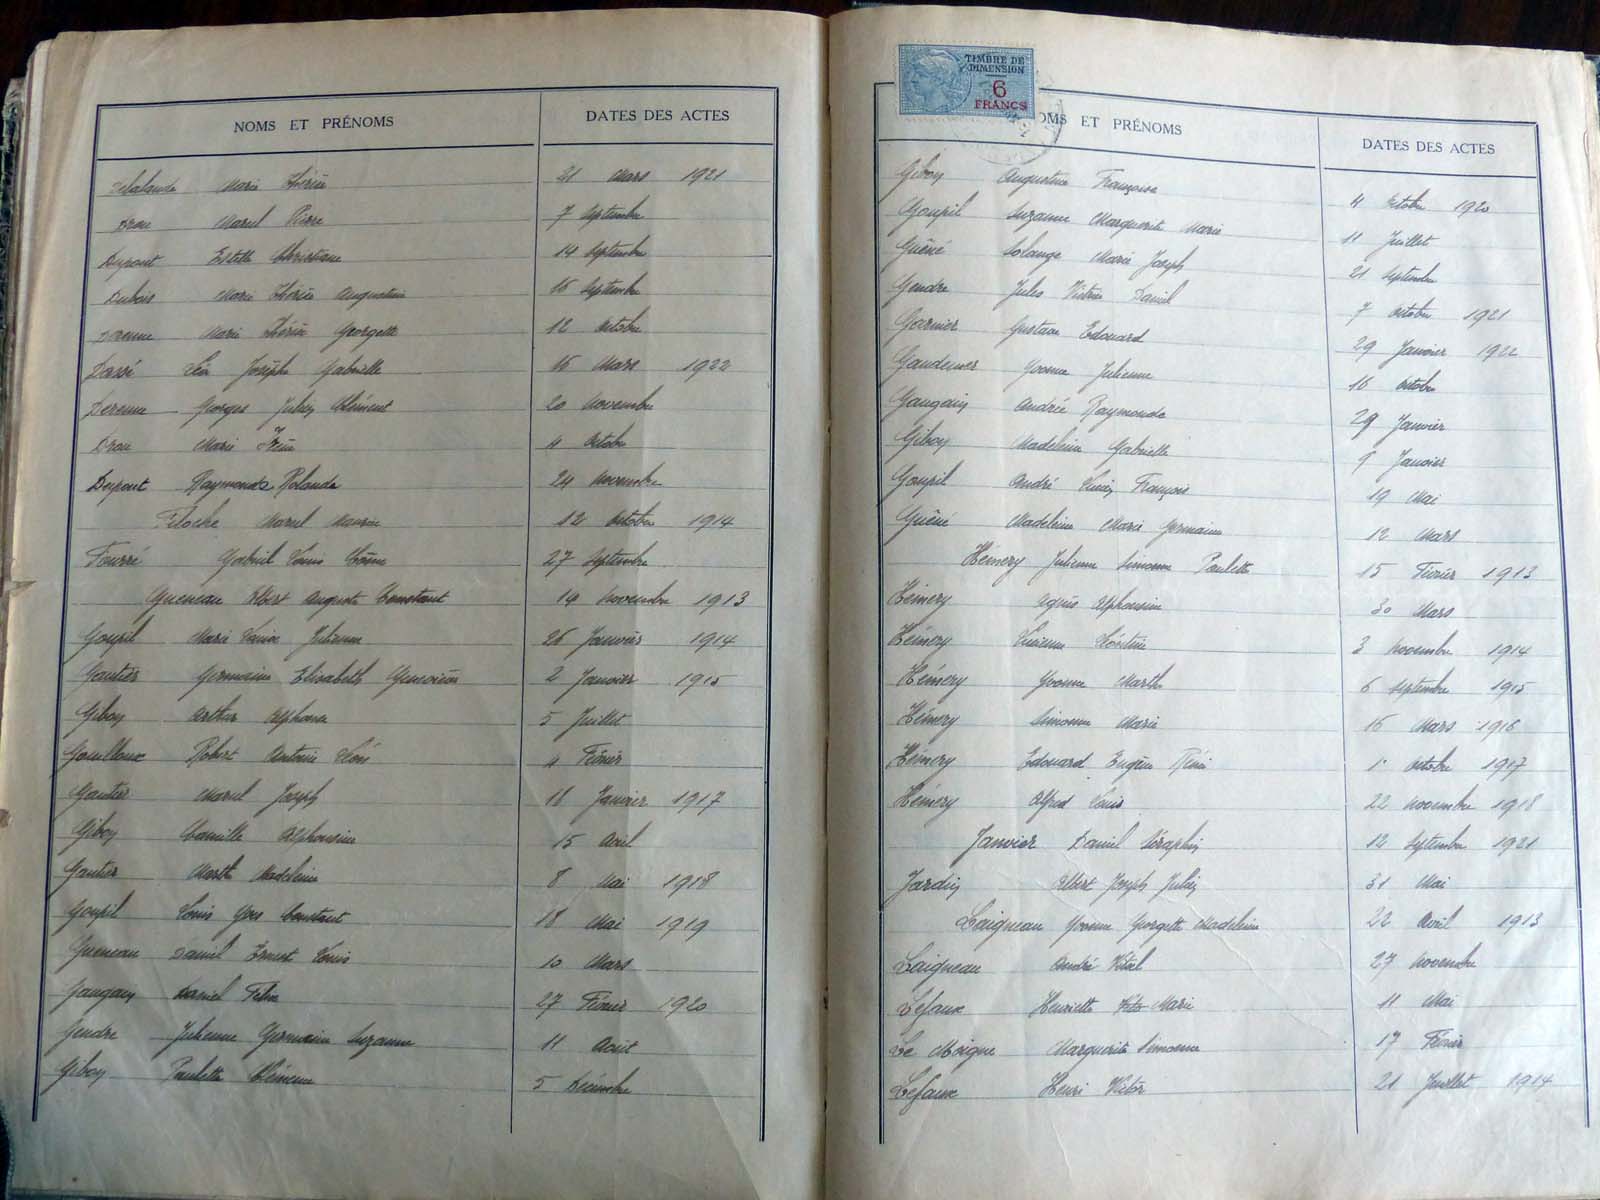 NOMS ET PRÉNOMS DATES DES ACTES
Delalande Marie Thérèse 21 Mars 1921
Drou Marcel Pierre 7 Septembre
Dupont Estelle Christiane 14 Septembre
Dubois Marie Thérèse Augustine 16 Septembre
Derenne Marie Thérèse Georgette 12 Octobre
Darré Léa Josèphe Gabrielle 16 Mars 1922
Derenne Georges Julien Clément 20 Novembre
Drou Marie Irène 4 Octobre
Dupont Raymonde Rolande 24 Novembre
Filoche Marcel Maurice 12 Octobre 1914
Fourré Gabriel Louis Côme 27 Septembre
Gueneau Albert Auguste Constant 14 Novembre 1913
Goupil Marie Louise Julienne 26 Janvier 1914
Gautier Germaine Elisabeth Geneviève 2 Janvier 1915
Giboy Arthur Alphonse 5 Juillet
Gouilloux Robert Antoine Léon 4 Février
Gautier Marcel Joseph 18 Janvier 1917
Giboy Camille Alphonsine 15 Avril
Gautier Marthe Madeleine 8 Mai 1918
Goupil Louis Yves Constant 18 Mai 1919
Gueneau Daniel Ernest Louis 10 Mars
Gaugain Daniel Félix 27 Février 1920
Gendre Julienne Germaine Suzanne 11 Août
Giboy Paulette Clémence 5 Décembre
TIMBRE DE
DIMENSION
6
FRANCS
OMS ET PRÉNOMS DATES DES ACTES
Giboy Augustine Françoise 4 Octobre 1920
Goupil Suzanne Marguerite Marie 11 Juillet
Guéné Solange Marie Joseph 21 Septembre
Gendre Jules Victrice Daniel 7 Octobre 1921
Garnier Gustave Edouard 29 Janvier 1922
Gaudemer Yvonne Julienne 16 Octobre
Gaugain Andrée Raymonde 29 Janvier
Giboy Madeleine Gabrielle 9 Janvier
Goupil André Louis François 19 Mai
Guéné Madeleine Marie Germaine 12 Mars
Hémery Julienne Simonne Paulette 15 Février 1913
Hémery Agnès Alphonsine 30 Mars
Hémery Lucienne Léontine 3 Novembre 1914
Hémery Yvonne Marthe 6 Septembre 1915
Hémery Simonne Marie 16 Mars 1916
Hémery Edouard Eugène Rémi 1er Octobre 1917
Hémery Alfred Louis 22 Novembre 1918
Janvier Daniel Séraphin 12 Septembre 1921
Jardin Albert Joseph Julien 31 Mai
Laigneau Yvonne Georgette Madeleine 22 Avril 1913
Laigneau André Vital 27 Novembre
Lefaux Henriette Marie 11 Mai
Le Moigne Marguerite Simonne 17 Février
Lefaux Henri Victor 21 Juillet 1914